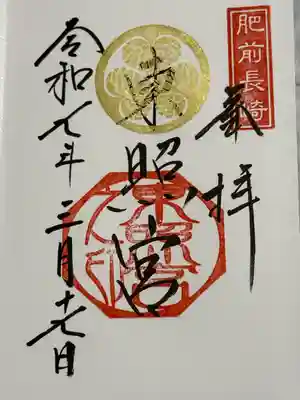 肥前長崎
奉拝
東照宮
令和七年三月十七日